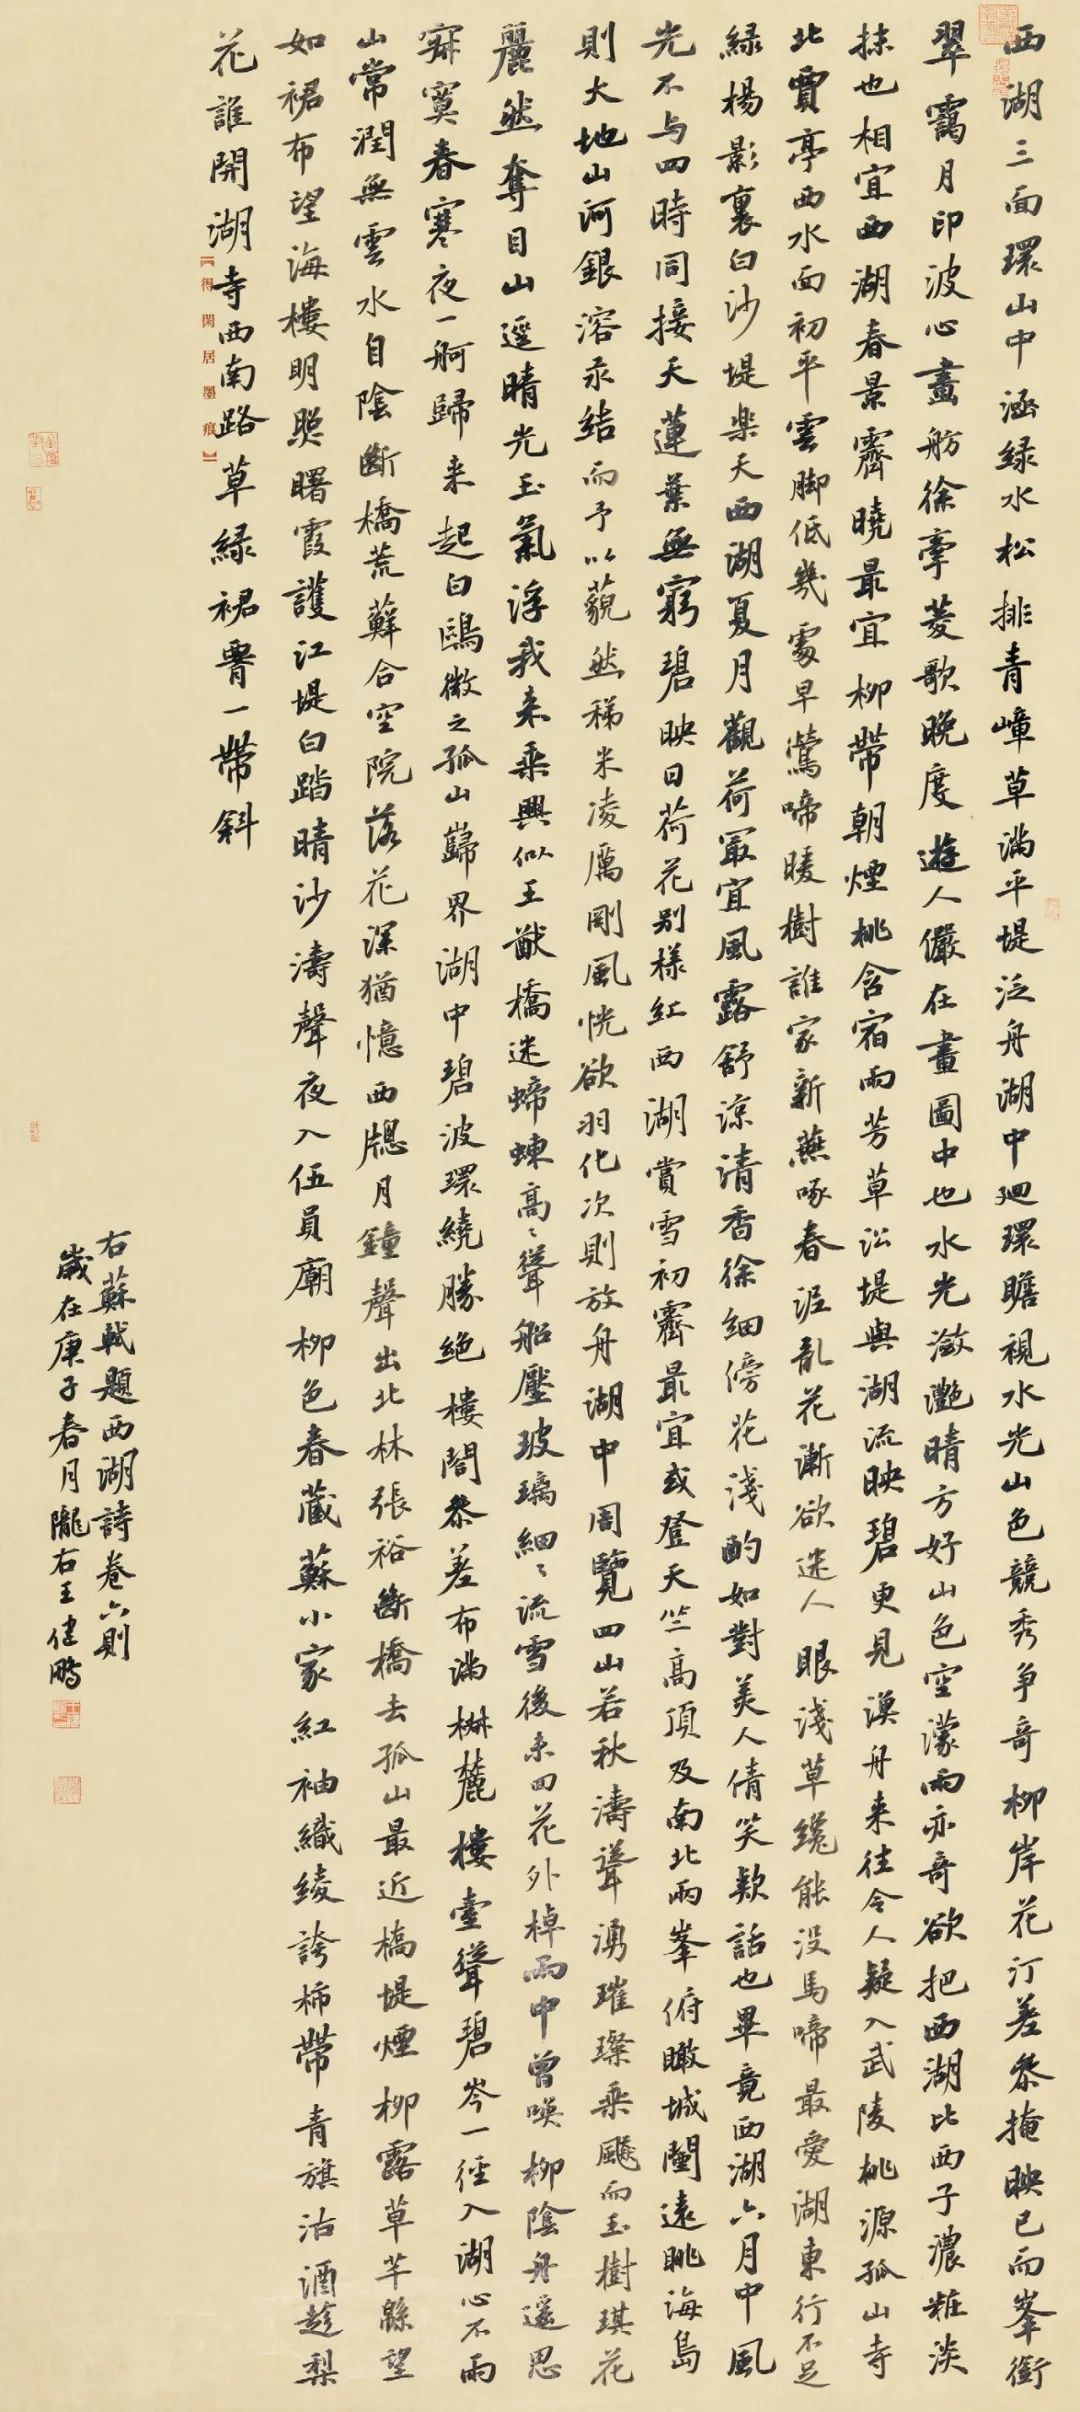 西湖三面環山中涵綠水松排青嶂草滿平堤泛舟湖中廻環瞻視水光山色競秀爭奇柳岸花汀差參掩映已而峯銜
翠靄月印波心畫舫徐牽菱歌晚度遊人儼在畫圖中也水光瀲灧晴方好山色空濛雨亦奇欲把西湖比西子濃粧淡
抹也相宜西湖春景霽曉最宜柳帶朝煙桃含宿雨芳草沿堤與湖流映碧更見漁舟来往令人疑入武陵桃源孤山寺
北賈亭西水面初平雲脚低幾處早鶯啼暖樹誰家新燕啄春泥亂花漸欲迷人眼淺草纔能没馬啼最愛湖東行不足
綠楊影裏白沙堤樂天西湖夏月觀荷最宜風露舒涼清香徐細傍花淺酌如對美人倩笑款話也畢竟西湖六月中風
光不与四時同接天蓮葉無窮碧映日荷花别樣紅西湖賞雪初霽最宜或登天竺高頂及南北兩峯俯瞰城闉遠眺海島
則大地山河銀溶汞結而予以藐然稊米凌厲剛風恍欲羽化次則放舟湖中周覽四山若秋濤聳湧璀璨乘飈而玉樹琪花
麗然奪目山逕晴光玉氣浮我来乘興似王猷橋迷螮蝀高〻聳船壓玻璃細〻流雪後未回花外棹雨中曾喚柳陰舟遥思
寂寞春寒夜一舸歸来起白鷗微之孤山巋界湖中碧波環繞勝絶樓閣參差布滿椒麓樓臺聳碧岑一徑入湖心不雨
山常潤無雲水自陰斷橋荒蘚合空院落花深猶憶西牕月鐘聲出北林張祐斷橋去孤山最近橋堤煙柳露草芊緜望
如裙布望海樓明照曙霞護江堤白踏晴沙濤聲夜入伍員廟柳色春藏蘇小家紅袖織綾誇柿帶青旗沽酒趁梨
花誰開湖寺西南路草綠裙罥一帶斜
【得閑居墨痕】
右蘇軾題西湖詩卷六則
歲在庚子春月隴右王健鵬